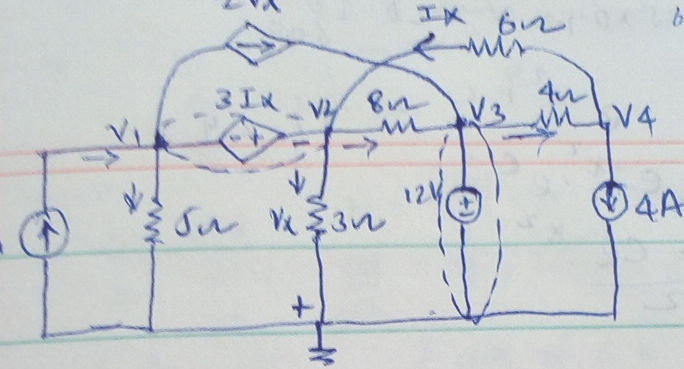 2Vx
Ix 6Ω
3Ix V2 8Ω V3 4Ω V4
V1
5Ω Vx 3Ω 12V 4A
+